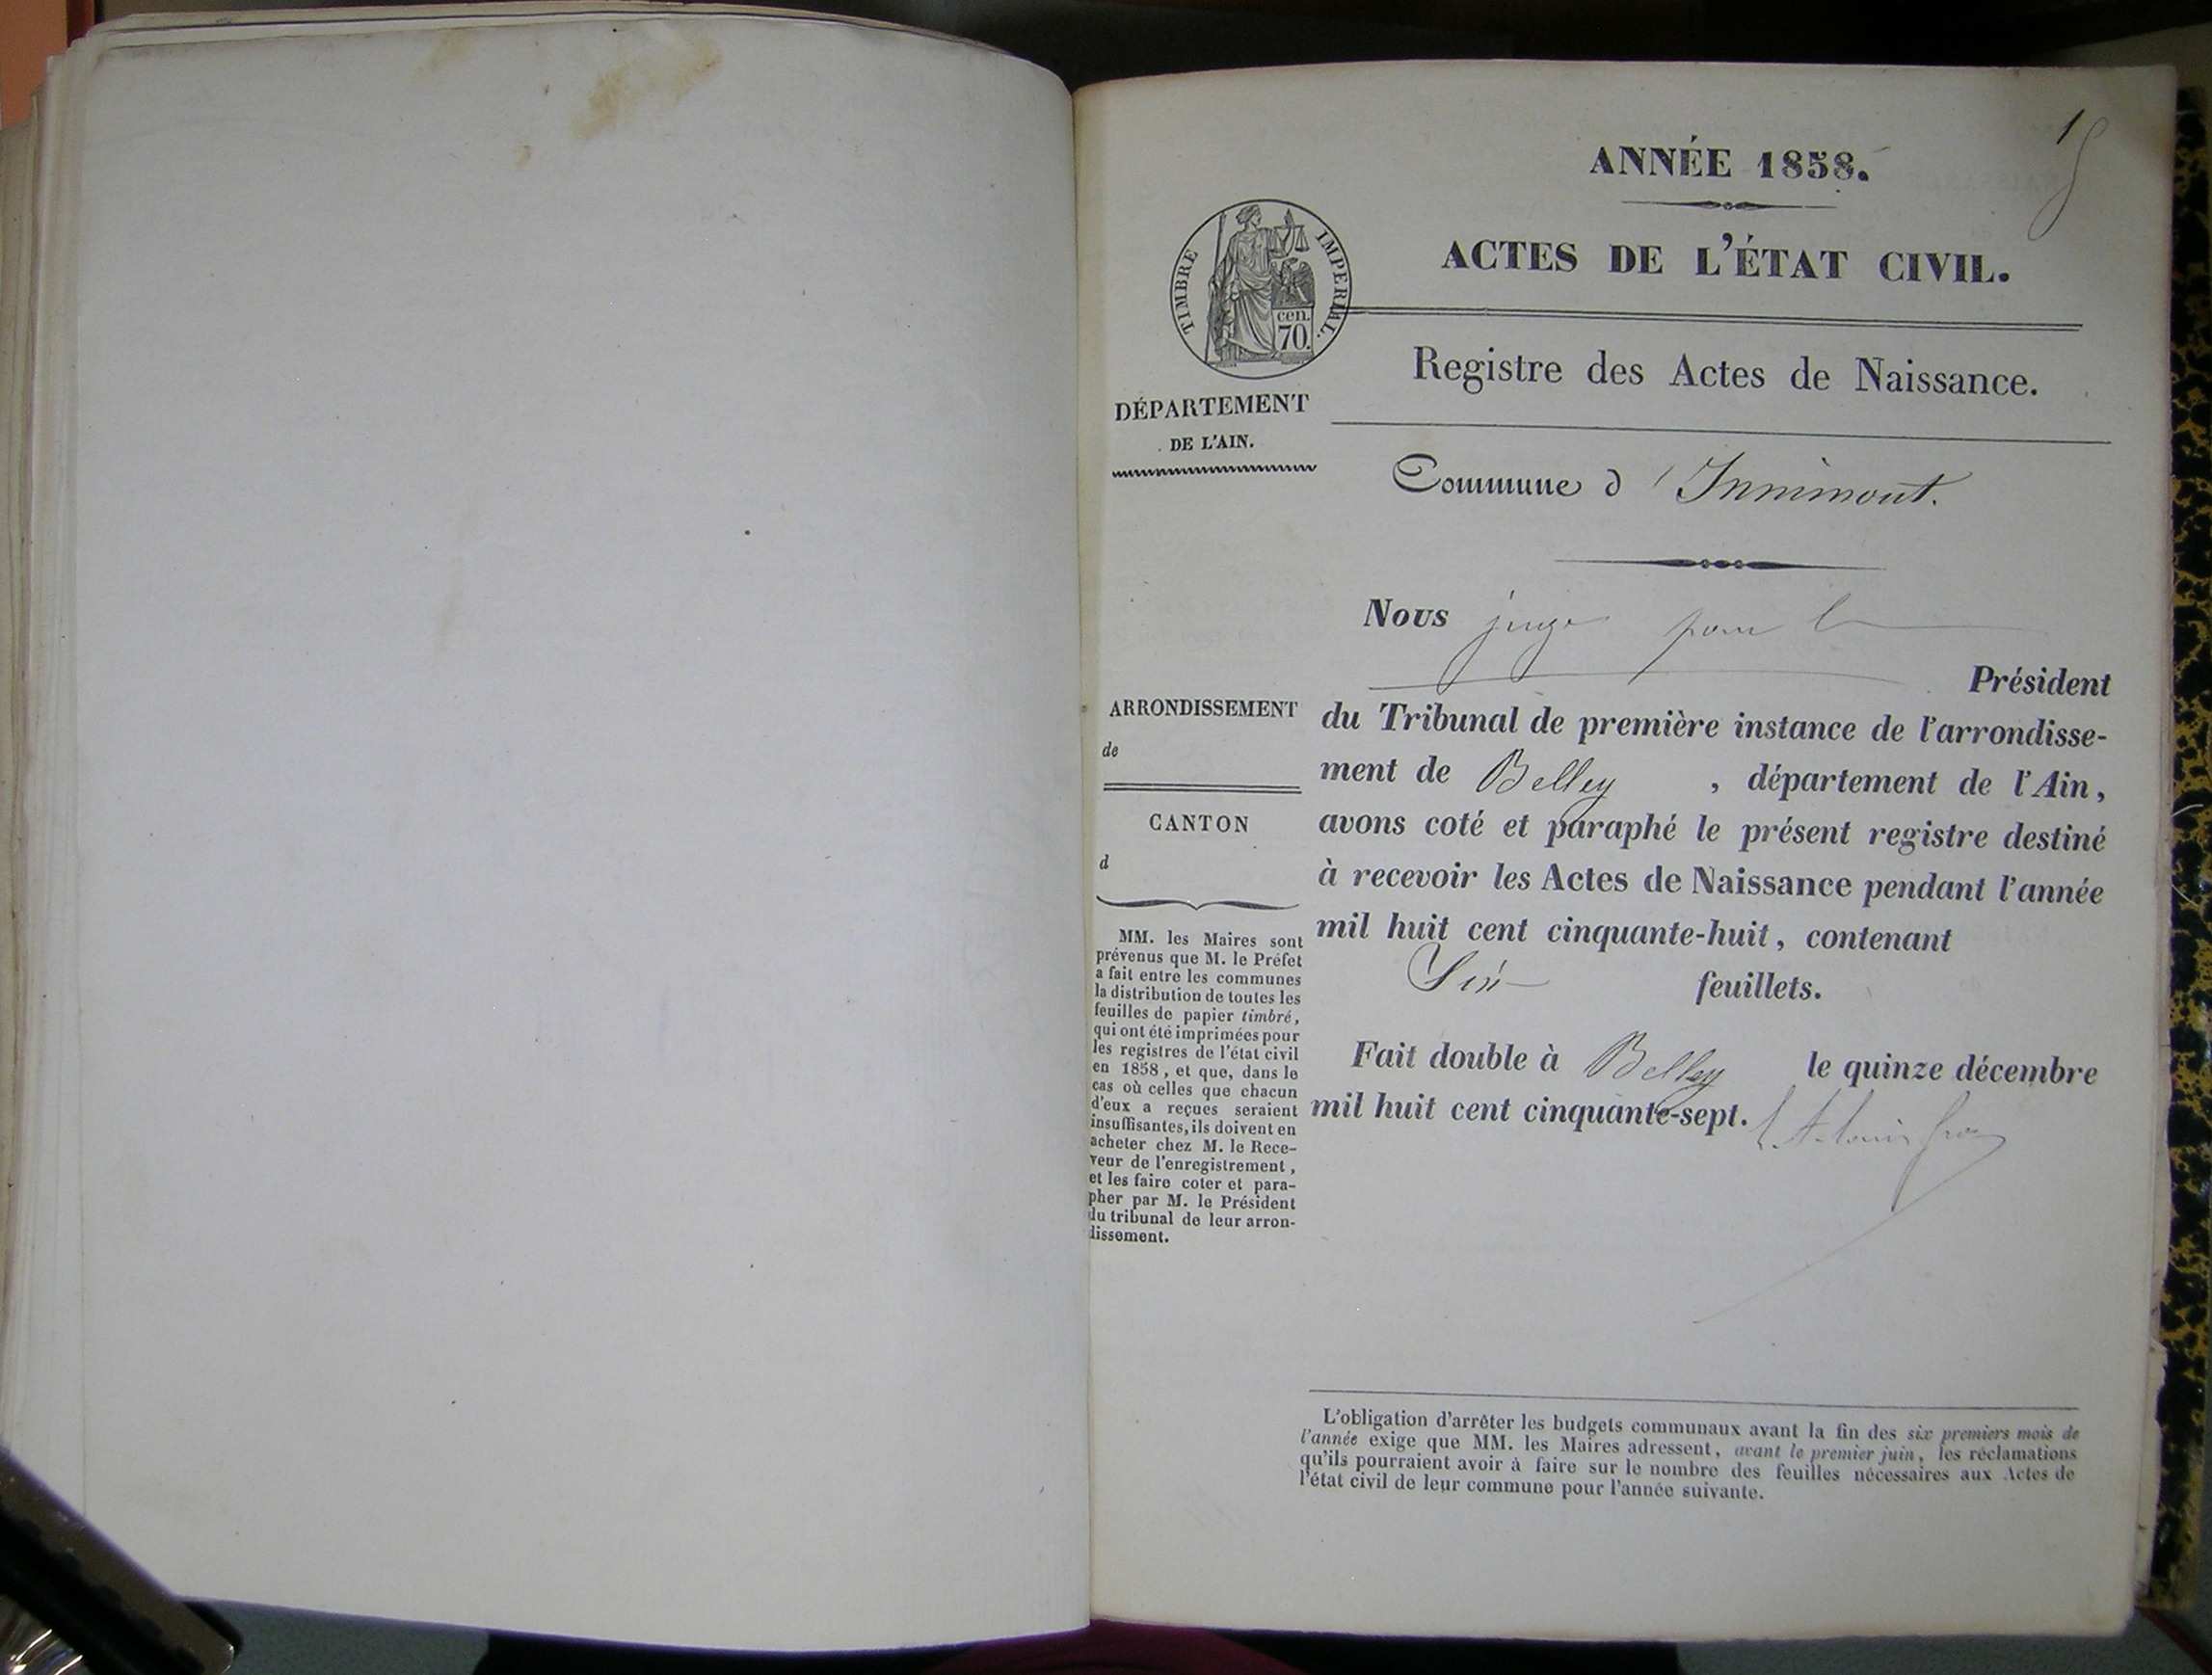 1
ANNÉE 1858.
ACTES DE L'ÉTAT CIVIL.
TIMBRE IMPERIAL.
cen.
70.
Registre des Actes de Naissance.
DÉPARTEMENT
DE L'AIN.
Commune d'Innimont.
Nous juge pour le
Président
du Tribunal de première instance de l'arrondisse-
ment de Belley, département de l'Ain,
avons coté et paraphé le présent registre destiné
à recevoir les Actes de Naissance pendant l'année
mil huit cent cinquante-huit, contenant
Six feuillets.
Fait double à Belley le quinze décembre
mil huit cent cinquante-sept.
ARRONDISSEMENT
de
CANTON
d
MM. les Maires sont
prévenus que M. le Préfet
a fait entre les communes
la distribution de toutes les
feuilles de papier timbré,
qui ont été imprimées pour
les registres de l'état civil
en 1858, et que, dans le
cas où celles que chacun
d'eux a reçues seraient
insuffisantes, ils doivent en
acheter chez M. le Rece-
veur de l'enregistrement,
et les faire coter et para-
pher par M. le Président
du tribunal de leur arron-
dissement.
L'obligation d'arrêter les budgets communaux avant la fin des six premiers mois de
l'année exige que MM. les Maires adressent, avant le premier juin, les réclamations
qu'ils pourraient avoir à faire sur le nombre des feuilles nécessaires aux Actes de
l'état civil de leur commune pour l'année suivante.